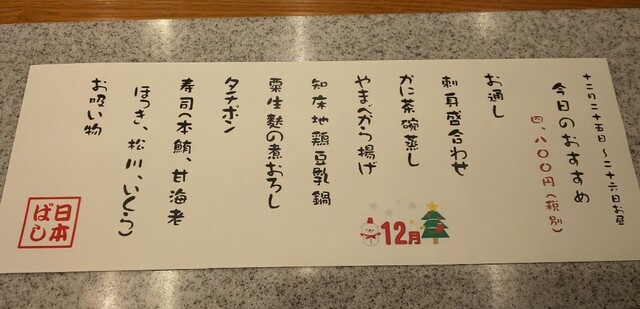 十二月二十五日～二十六日お昼
今日のおすすめ
四、八〇〇円(税別)
お通し
刺身盛合わせ
かに茶碗蒸し
やまべから揚げ
知床地鶏豆乳鍋
粟生麩の煮おろし
タチポン
寿司(本鮪、甘海老
ほっき、松川、いくら)
お吸い物
12月
日本
ばし